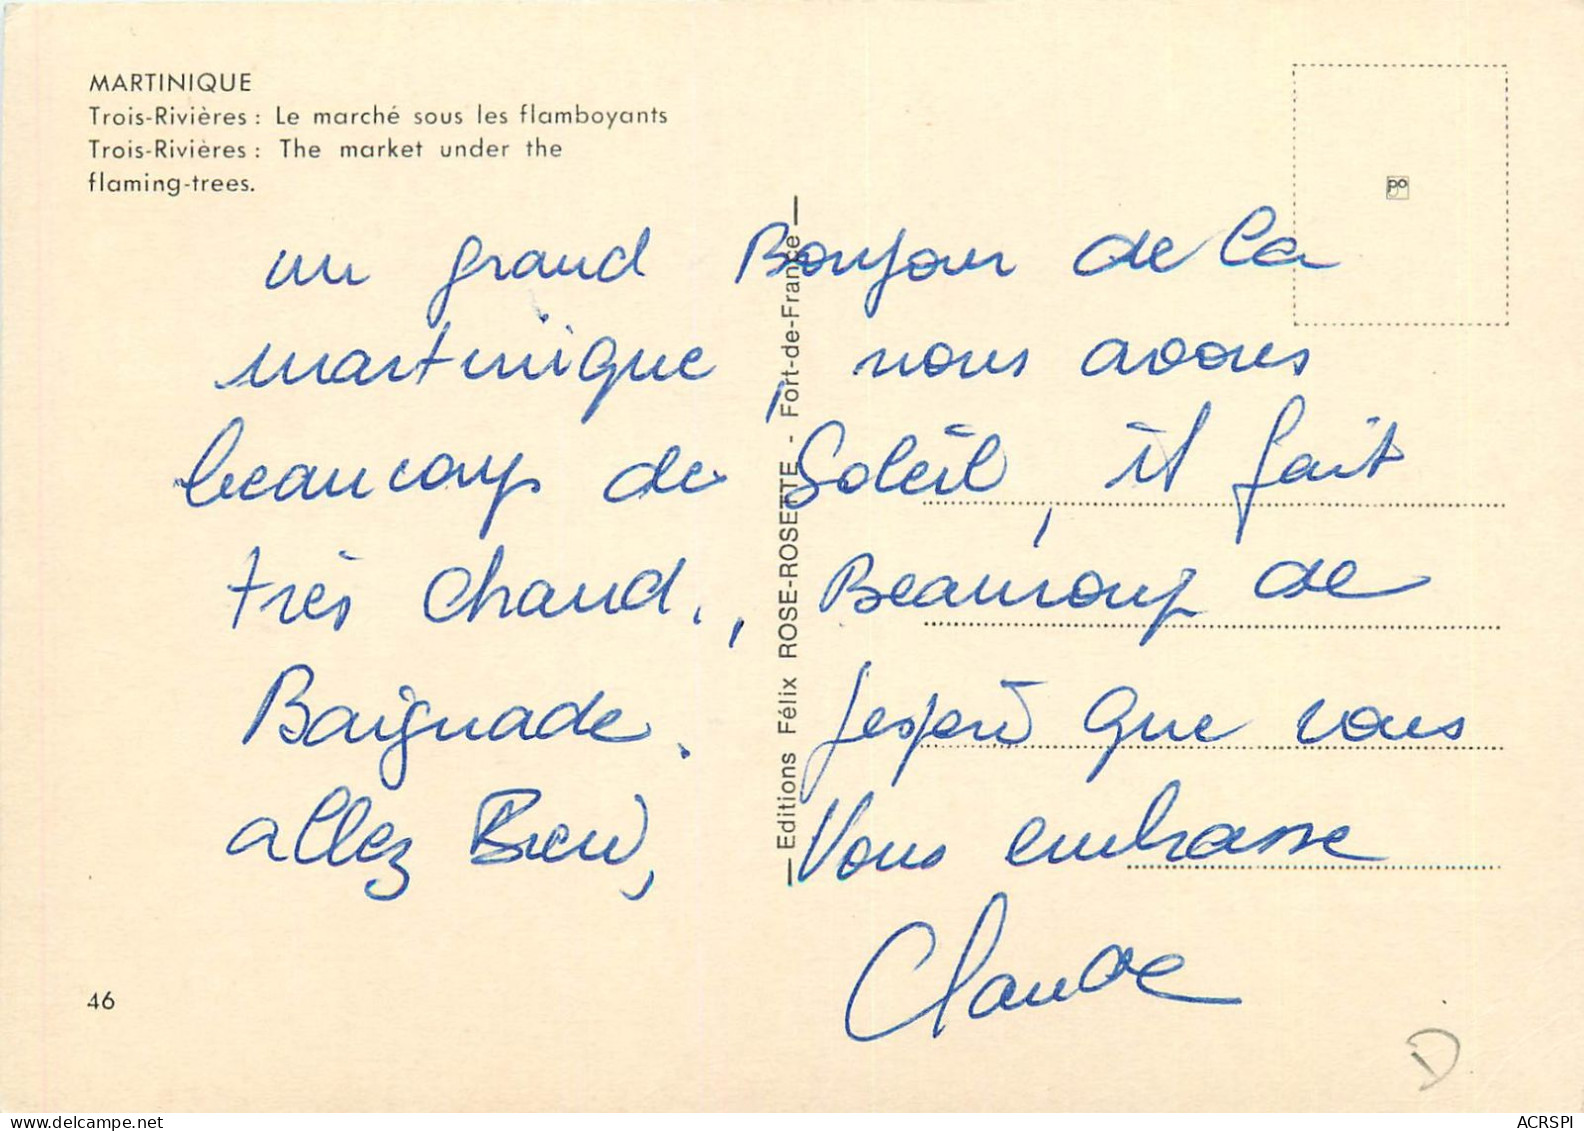 MARTINIQUE
Trois-Rivières : Le marché sous les flamboyants
Trois-Rivières : The market under the
flaming-trees.
un grand Bonjour de la
martinique, nous avons
beaucoup de Soleil, il fait
très chaud., Beaucoup de
Baignade. J'espère que vous
allez Bien, Vous embrasse
Claude
Editions Félix ROSE-ROSETTE - Fort-de-France
46
D
www.delcampe.net
ACRSPI